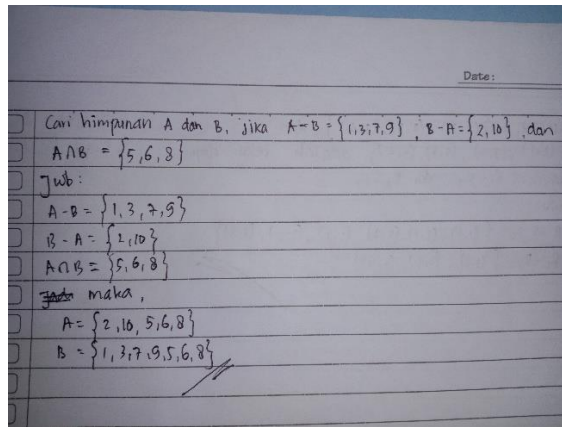 Date:
Cari himpunan A dan B, jika A-B = {1,3,7,9}, B-A = {2,10}, dan
A∩B = {5,6,8}
Jwb:
A-B = {1,3,7,9}
B-A = {2,10}
A∩B = {5,6,8}
maka,
A = {2,10,5,6,8}
B = {1,3,7,9,5,6,8}